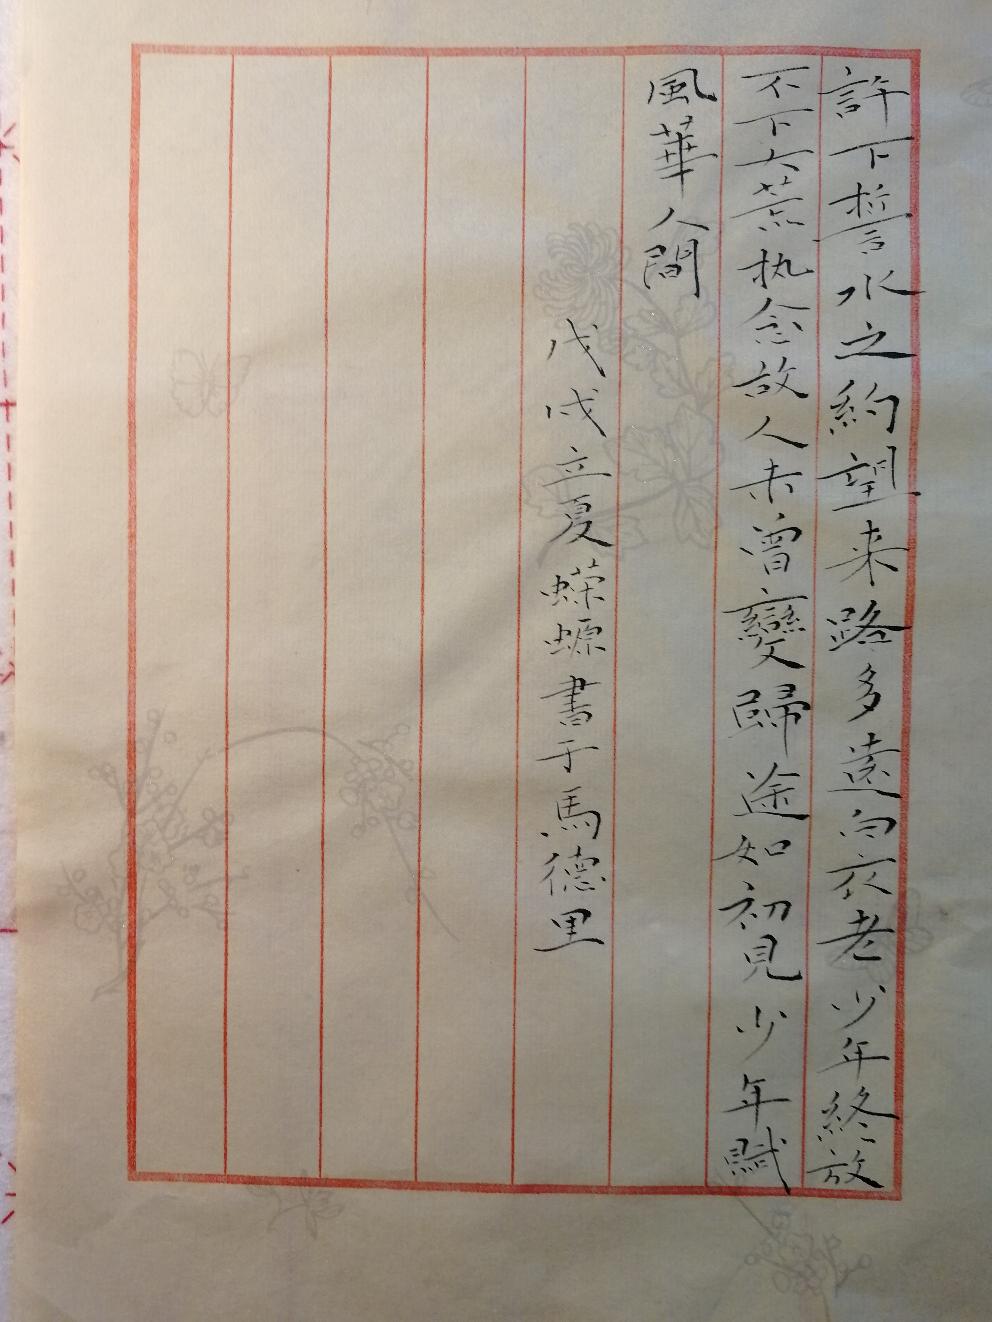 許下誓水之約望来路多遠白衣老少年終放
不下大荒执念故人未曾變歸途如初見少年賦
風華人間
戊戌立夏蝾螈書于馬德里